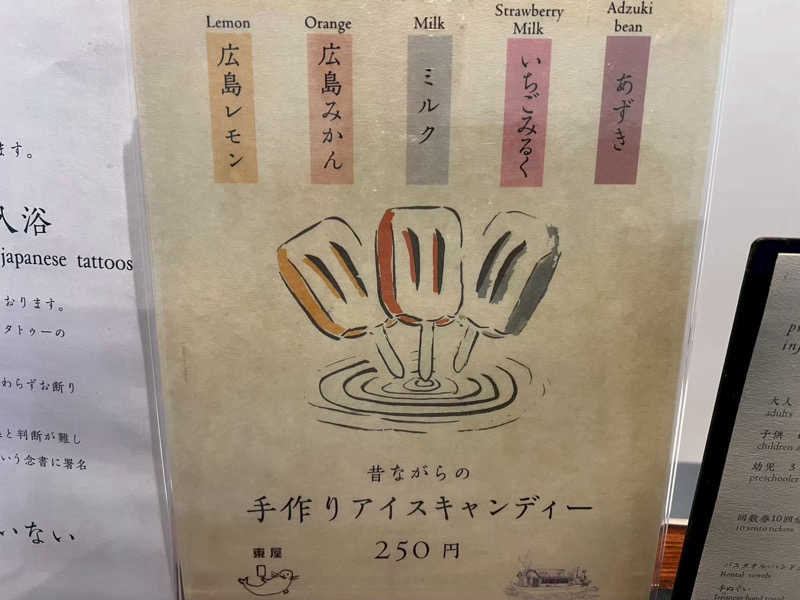 Lemon
広島レモン
Orange
広島みかん
Milk
ミルク
Strawberry
Milk
いちごみるく
Adzuki
bean
あずき
昔ながらの
手作りアイスキャンディー
250 円
東屋
ます。
入浴
japanese tattoos
おります。
タトゥーの
わらずお断り
と判断が難し
いう念書に署名
いない
大人
adults
子供
children
幼児 3
preschooler
回数券10回
10 sento tickets
バスタオル・ハンド
Rental towels
手ぬぐい